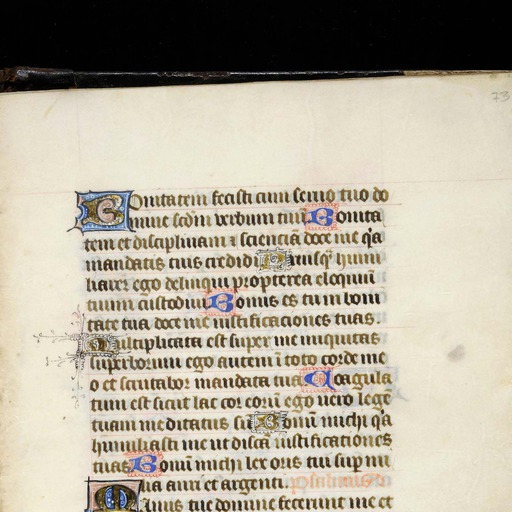 73
Bonitatem fecisti cum seruo tuo do
mine scdm verbum tuū Bonita
tem et disciplinam ⁊ scienciā doce me q̄a
mandatis tuis credidi Priusq̄ humi
liarer ego deliqui propterea eloquiū
tuum custodiui Bonus es tu in boni
tate tua doce me iustificaciones tuas.
Multiplicata est super me iniquitas
superborum ego autem ī toto corde me
o et scrutabor mandata tua Coagula
tum est sicut lac cor eorū ego uero legē
tuam meditatus sū Bonū michi q̄a
humiliasti me ut discā iustificationes
tuas Bonū michi lex oris tui sup̄ mi
lia auri et argenti.
Manus tue domine fecerunt me et